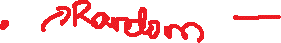 . ↗Random —